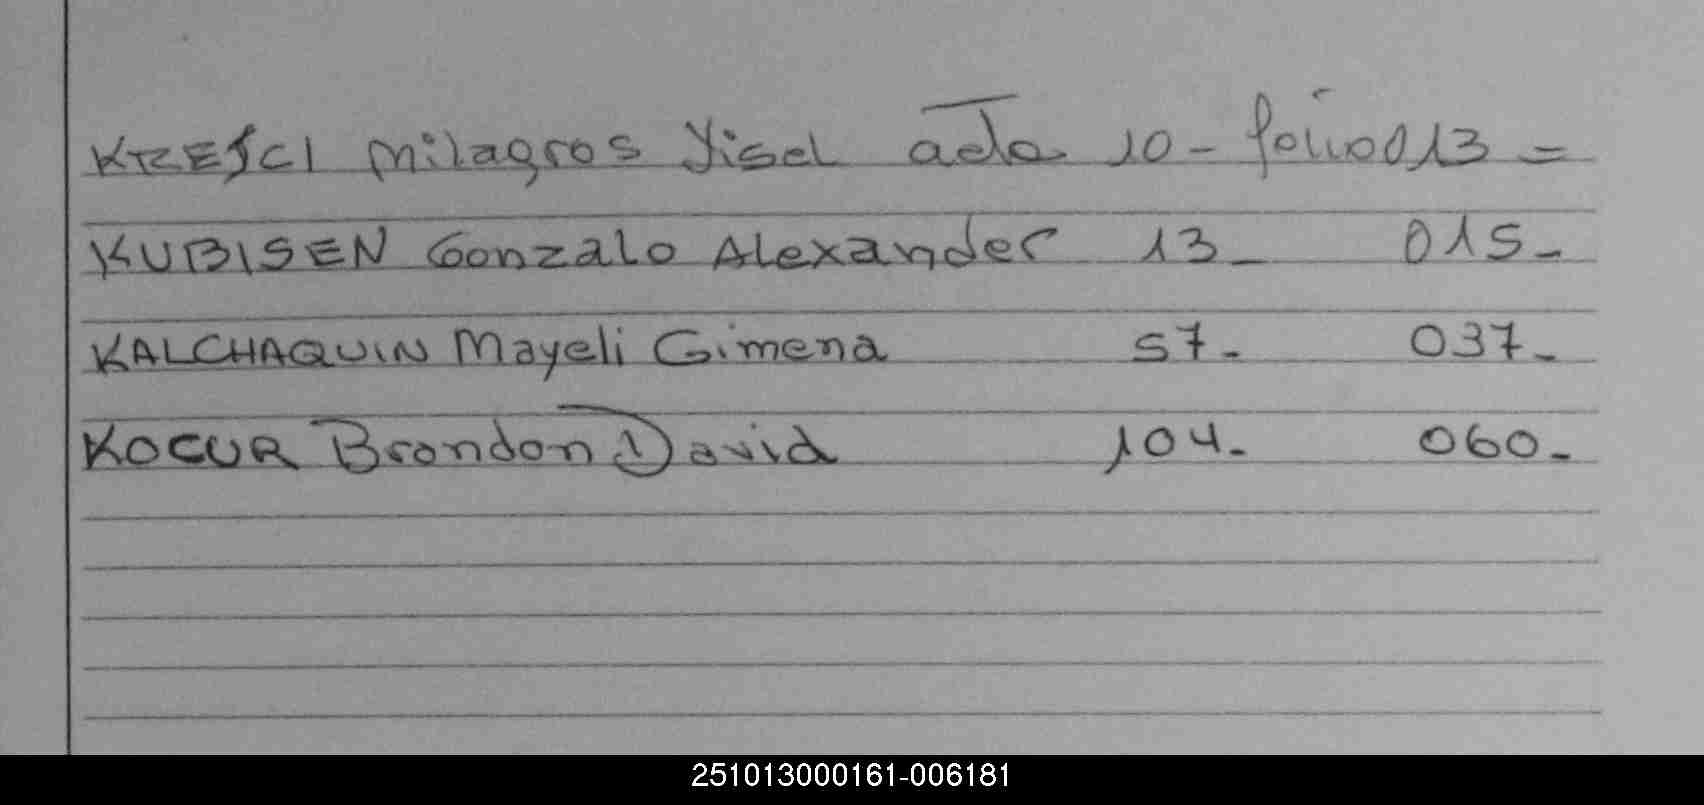 KREJCI Milagros Yisel acta 10 - folio 013 =
KUBISEN Gonzalo Alexander 13 - 015 -
KALCHAQUIN Mayeli Gimena 57 - 037 -
KOCUR Brandon David 104 - 060 -
251013000161-006181